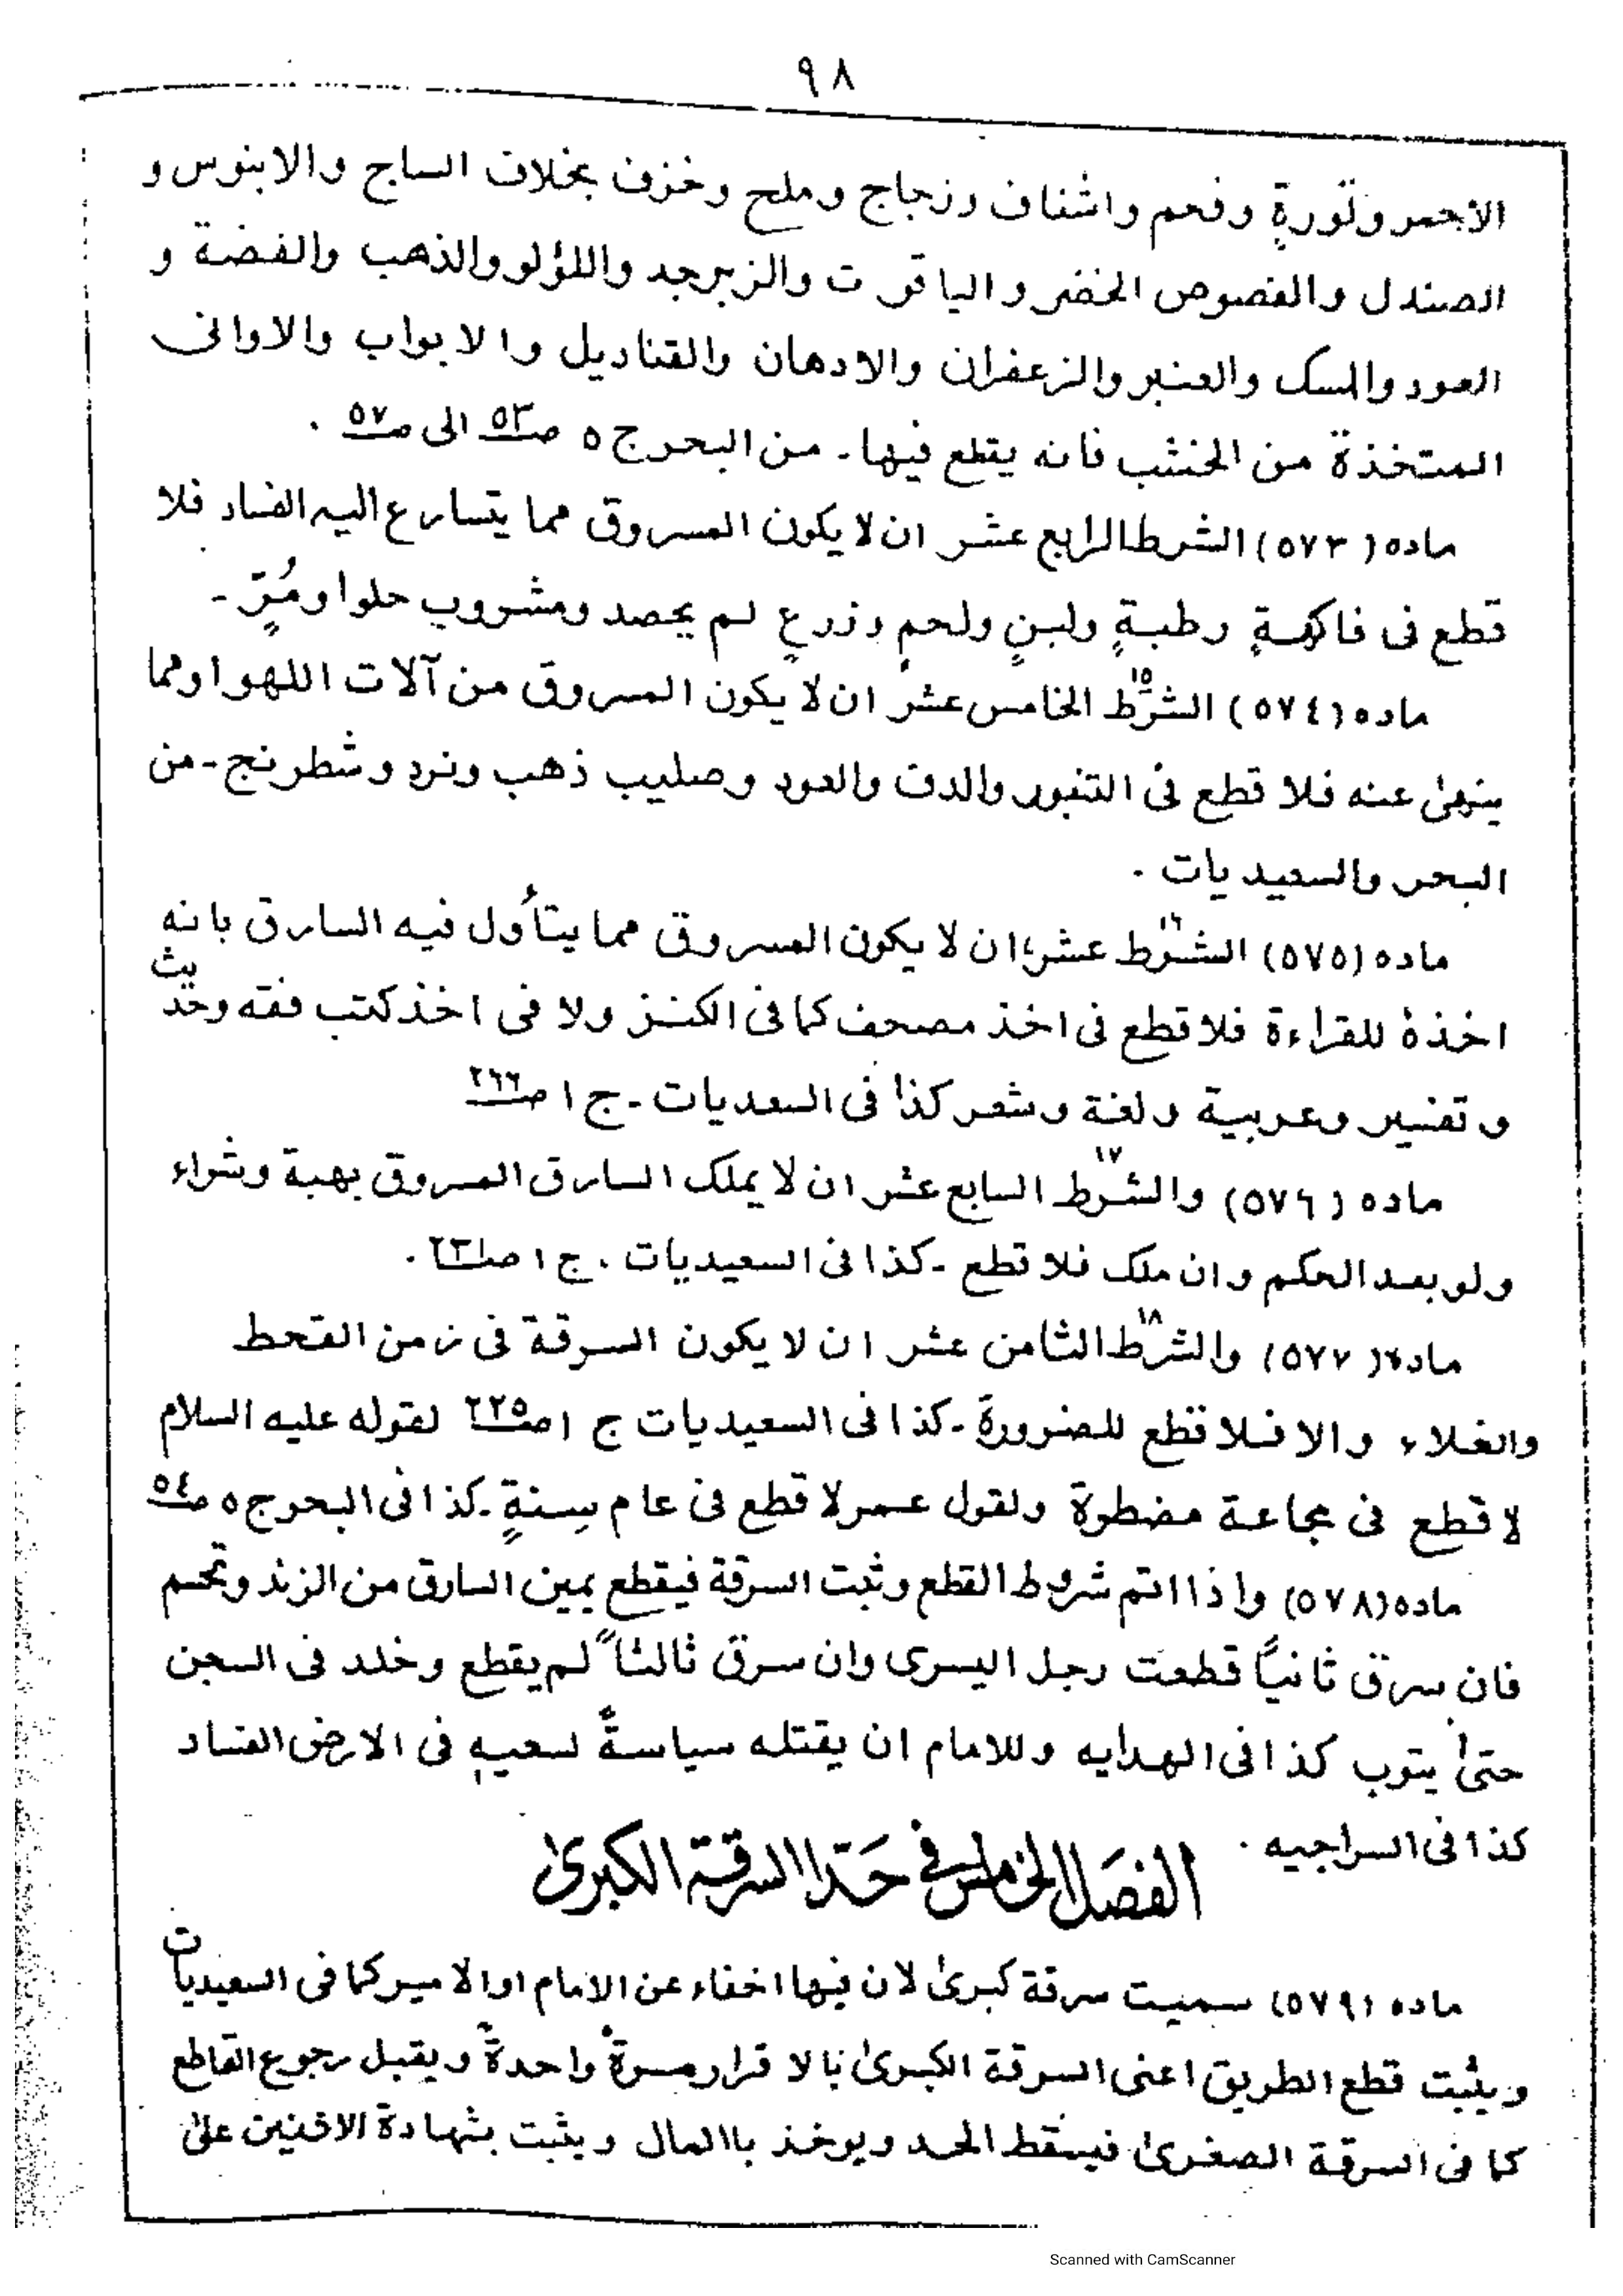 ٩٨
الاحمر ونورةٍ وفحم واشناف وزجاج وملح وخزف بخلاف الساج والابنوس و
الصندل والفصوص الخضر والياقوت والزبرجد واللؤلو والذهب والفضة و
العود والمسك والعنبر والزعفران والادهان والقناديل والابواب والاوانی
المتخذة من الخشب فانه يقطع فيها ـ من البحر ج ٥ صـ٥٣ الی صـ٥٧ .
ماده (٥٧٣) الشرط الرابع عشر ان لا يكون المسروق مما يتسارع اليه الفساد فلا
قطع فی فاكهةٍ رطبةٍ ولبنٍ ولحمٍ وزرعٍ لم يحصد ومشروب حلوا ومُرٍّ ـ
ماده (٥٧٤) الشرط ١٥ الخامس عشر ان لا يكون المسروق من آلات اللهو او مما
ينهیٰ عنه فلا قطع فی التنبور والدف والعود وصليب ذهب ونرد وشطرنج ـ من
البحر والسعيديات .
ماده (٥٧٥) الشرط ١٦ عشر ان لا يكون المسروق مما يتأول فيه السارق بانه
اخذهٗ للقراءة فلا قطع فی اخذ مصحف كما فی الكنز ولا فی اخذ كتب فقه وحديث
و تفسير وعربية ولغة وشعر كذا فی السعديات ـ ج ١ صـ٢٦٦
ماده (٥٧٦) والشرط ١٧ السابع عشر ان لا يملك السارق المسروق بهبة وشراء
ولو بعد الحكم وان ملك فلا قطع ـ كذا فی السعيديات . ج ١ صـ٢٣١ .
ماده (٥٧٧) والشرط ١٨ الثامن عشر ان لا يكون السرقة فی زمن القحط
والغلاء والا فلا قطع للضرورة ـ كذا فی السعيديات ج ١ صـ٢٢٥ لقوله عليه السلام
لا قطع فی مجاعة مضطرة ولقول عمر لا قطع فی عام سِنةٍ ـ كذا فی البحر ج ٥ صـ٥٤
ماده (٥٧٨) واذا اتم شروط القطع وثبت السرقة فيقطع يمين السارق من الزند وتحسم
فان سرق ثانياً قطعت رجل اليسری وان سرق ثالثاً لم يقطع وخلد فی السجن
حتیٰ يتوب كذا فی الهدايه وللامام ان يقتله سياسةً لسعيهٖ فی الارض الفساد
كذا فی السراجيه .
الفصل الخامس فی حَدّ السرقة الكبریٰ
ماده (٥٧٩) سميت سرقة كبریٰ لان فيها اخفاء عن الامام او الامير كما فی السعيديات
ويثبت قطع الطريق اعنی السرقة الكبریٰ بالاقرار مرةً واحدةً ويقبل رجوع القاطع
كما فی السرقة الصغریٰ فيسقط الحد ويوخذ باالمال ويثبت بشهادة الاثنين علیٰ
Scanned with CamScanner